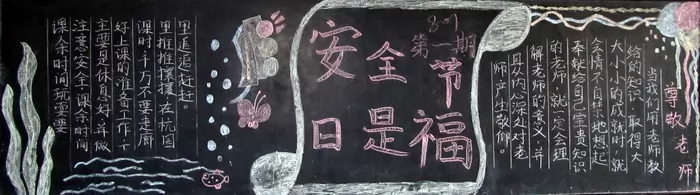 课余时间玩耍要
注意安全,课余时间
主要是休息好,并做
好上课的准备工作,下
课时千万不要走廊
里推推攘攘,在校园
里追追赶赶。
801
第一期
安全节
日是福
尊敬老师
当我们用老师教
给的知识,取得大
大小小的成就时,就
会情不自禁地想起
奉献给自己宝贵知识
的老师,就一定会理
解老师的意义,并
且从内深处对老
师产生敬仰。